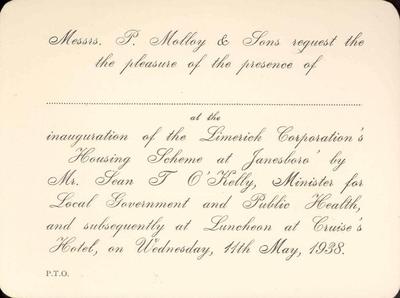 Messrs. P. Molloy & Sons request the
the pleasure of the presence of
at the
inauguration of the Limerick Corporation's
Housing Scheme at Janesboro' by
Mr. Sean T O'Kelly, Minister for
Local Government and Public Health,
and subsequently at Luncheon at Cruise's
Hotel, on Wednesday, 11th May, 1938.
P.T.O.